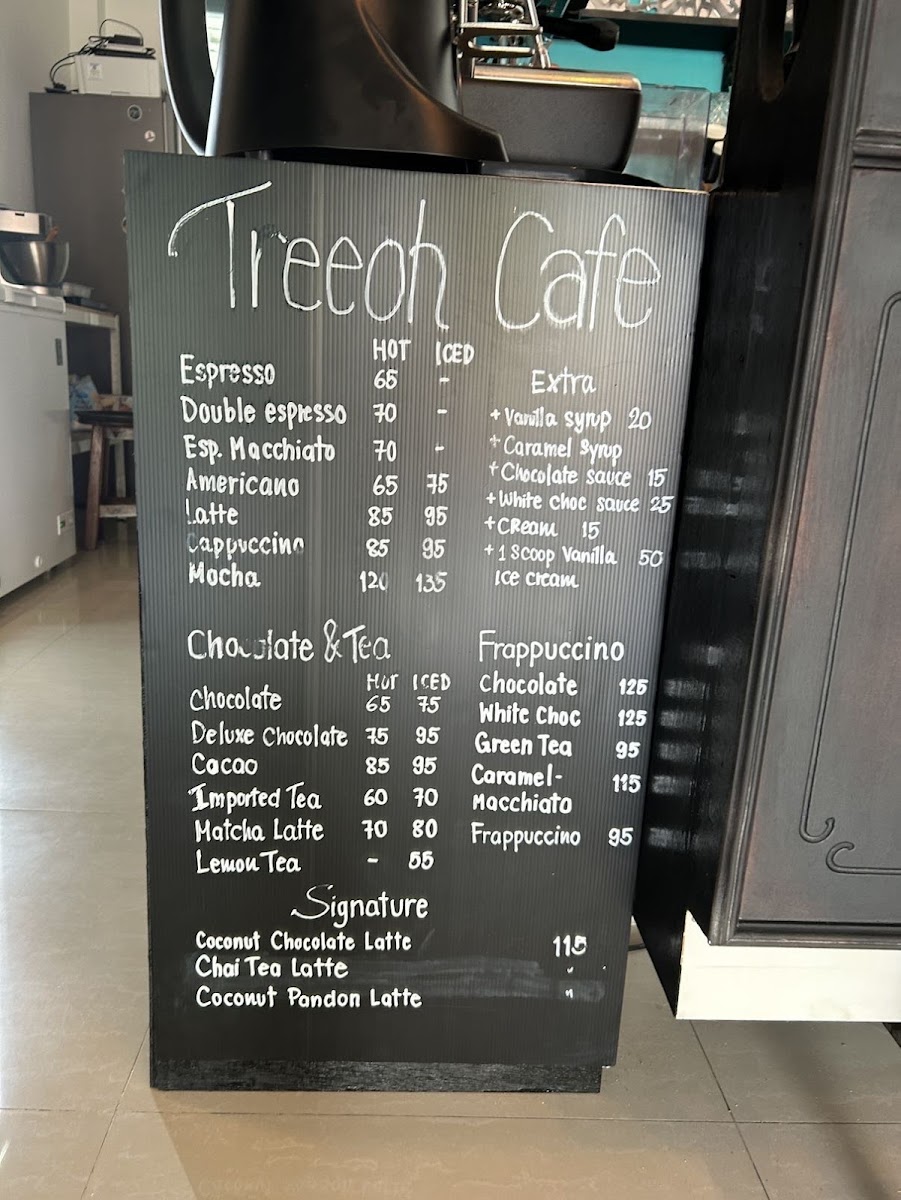 Treeoh Cafe
HOT ICED
Espresso 65 -
Double espresso 70 -
Esp. Macchiato 70 -
Americano 65 75
Latte 85 95
Cappuccino 85 95
Mocha 120 135
Extra
+ Vanilla syrup 20
+ Caramel Syrup
+ Chocolate sauce 15
+ White choc sauce 25
+ CReam 15
+ 1 Scoop Vanilla 50
Ice cream
Chocolate & Tea
Hot ICED
Chocolate 65 75
Deluxe Chocolate 75 95
Cacao 85 95
Imported Tea 60 70
Matcha Latte 70 80
Lemon Tea - 55
Frappuccino
Chocolate 125
White Choc 125
Green Tea 95
Caramel- 115
Macchiato
Frappuccino 95
Signature
Coconut Chocolate Latte 115
Chai Tea Latte "
Coconut Pandon Latte "